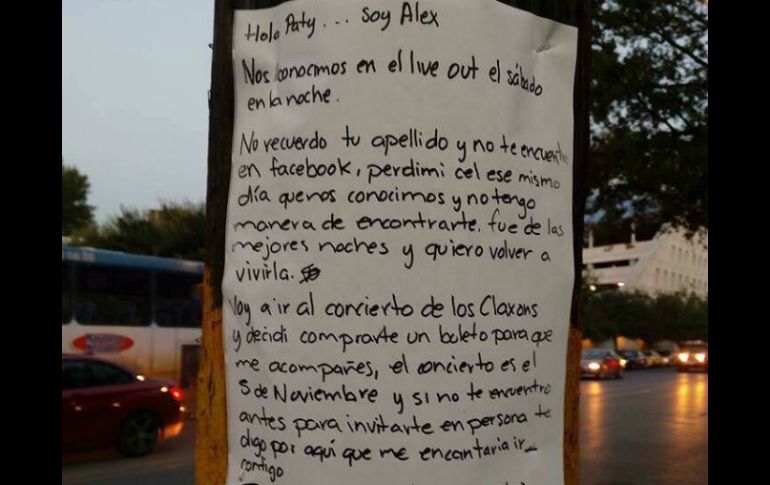 Hola Paty... Soy Alex
Nos conocimos en el live out el sábado
en la noche.
No recuerdo tu apellido y no te encuentro
en facebook, perdimi cel ese mismo
día que nos conocimos y no tengo
manera de encontrarte, fue de las
mejores noches y quiero volver a
vivirla.
Voy a ir al concierto de los Claxons
y decidí comprarte un boleto para que
me acompañes, el concierto es el
5 de Noviembre y si no te encuentro
antes para invitarte en persona te
digo por aquí que me encantaría ir
contigo